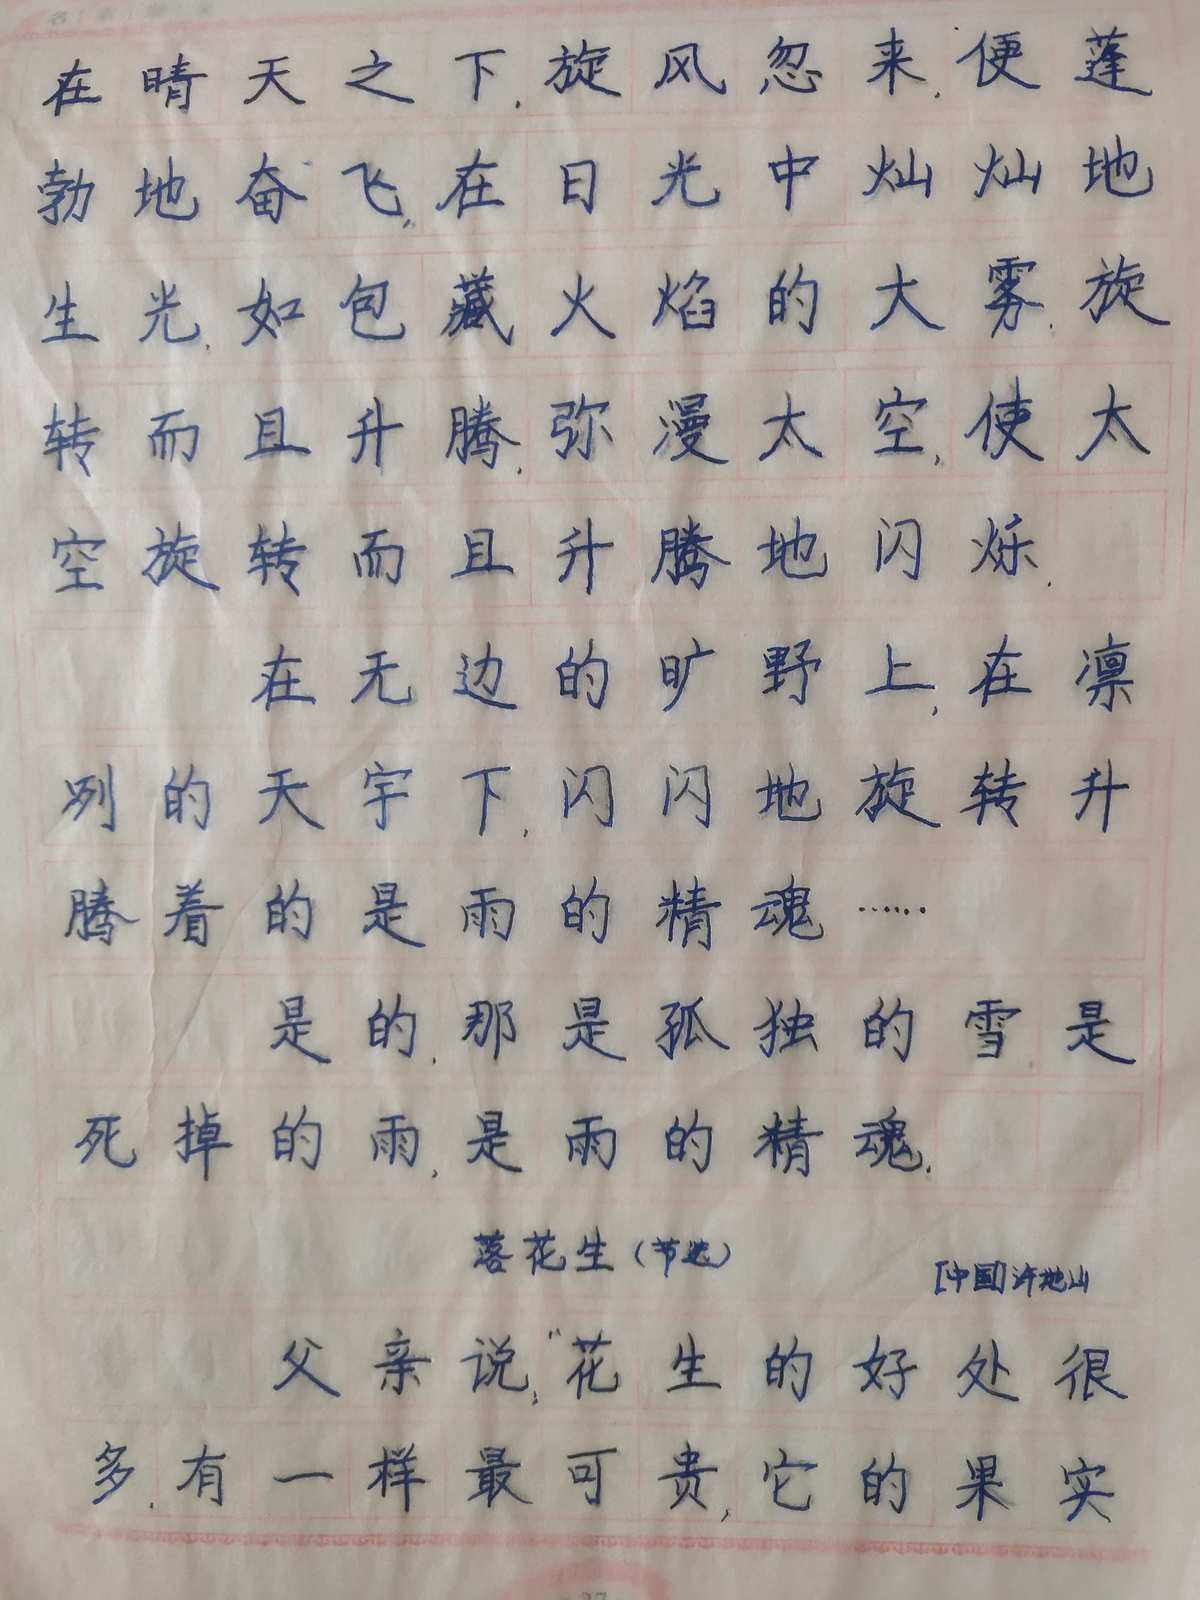 在晴天之下,旋风忽来,便蓬
勃地奋飞,在日光中灿灿地
生光,如包藏火焰的大雾,旋
转而且升腾,弥漫太空,使太
空旋转而且升腾地闪烁.
在无边的旷野上,在凛
冽的天宇下,闪闪地旋转升
腾着的是雨的精魂……
是的,那是孤独的雪是
死掉的雨,是雨的精魂.
落花生(节选)
[中国]许地山
父亲说,"花生的好处很
多,有一样最可贵,它的果实
27